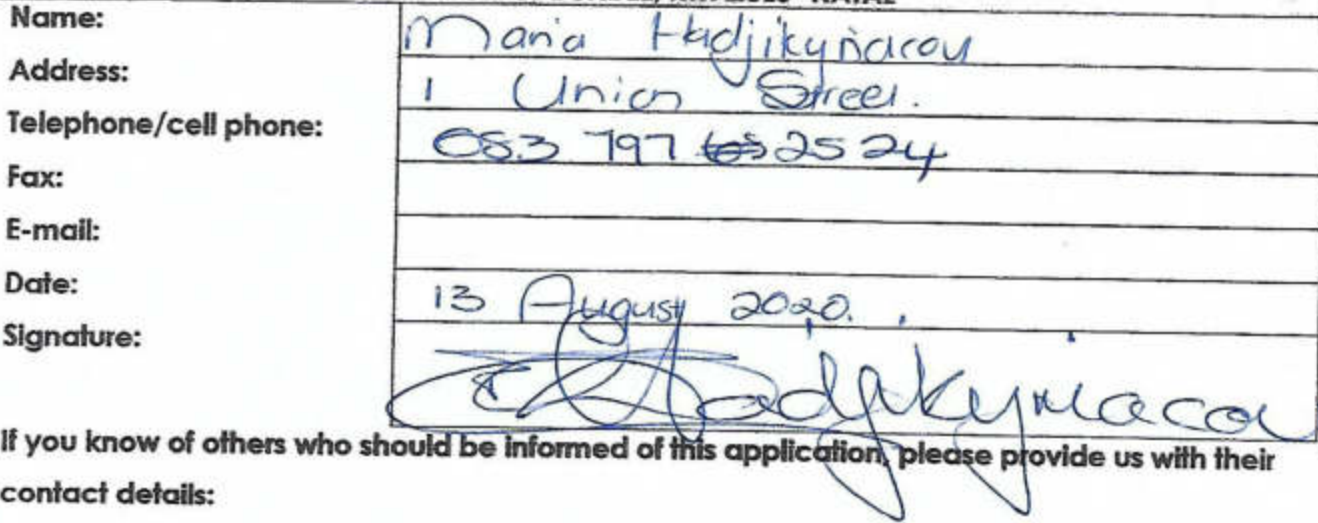 Name: Maria Hadjikyriacou
Address: 1 Union Street.
Telephone/cell phone: 083 797 2524
Fax:
E-mail:
Date: 13 August 2020.
Signature: Hadjikyriacou
If you know of others who should be informed of this application, please provide us with their
contact details: